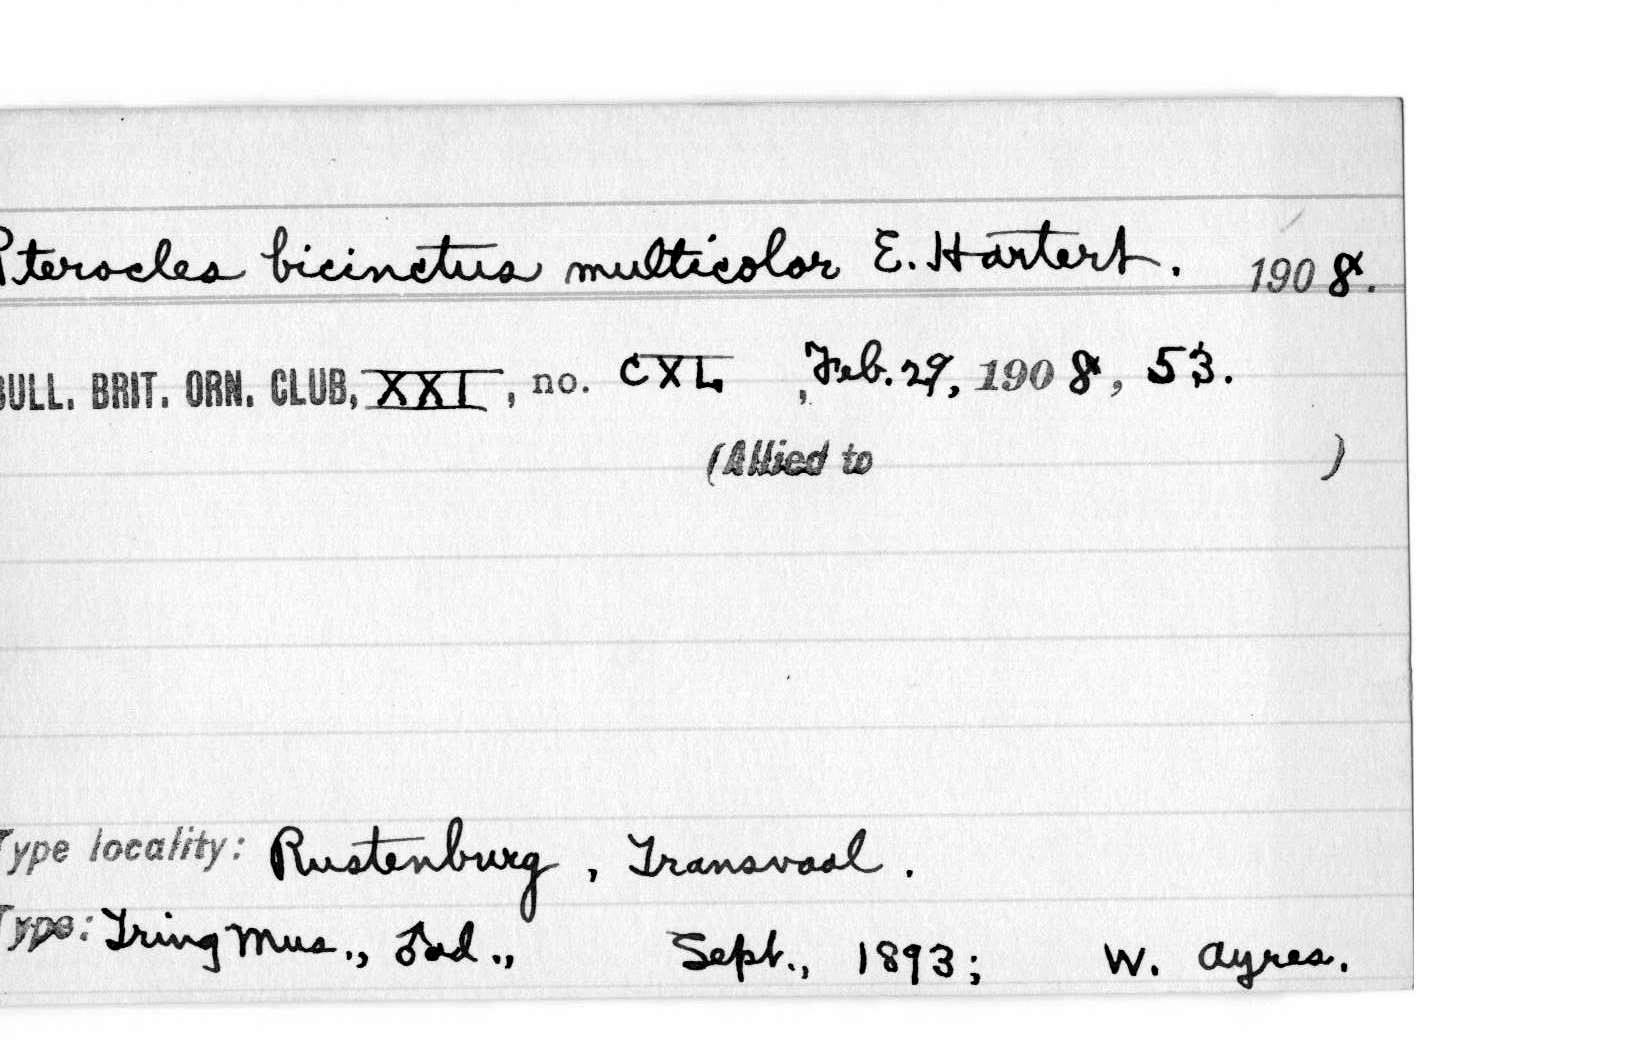 Pterocles bicinctus multicolor E. Hartert. 1908.
BULL. BRIT. ORN. CLUB, XXI, no. CXL, Feb. 29, 1908, 53.
(Allied to )
Type locality: Rustenburg, Transvaal.
Type: Tring Mus., ♂ad., Sept., 1893; W. Ayres.